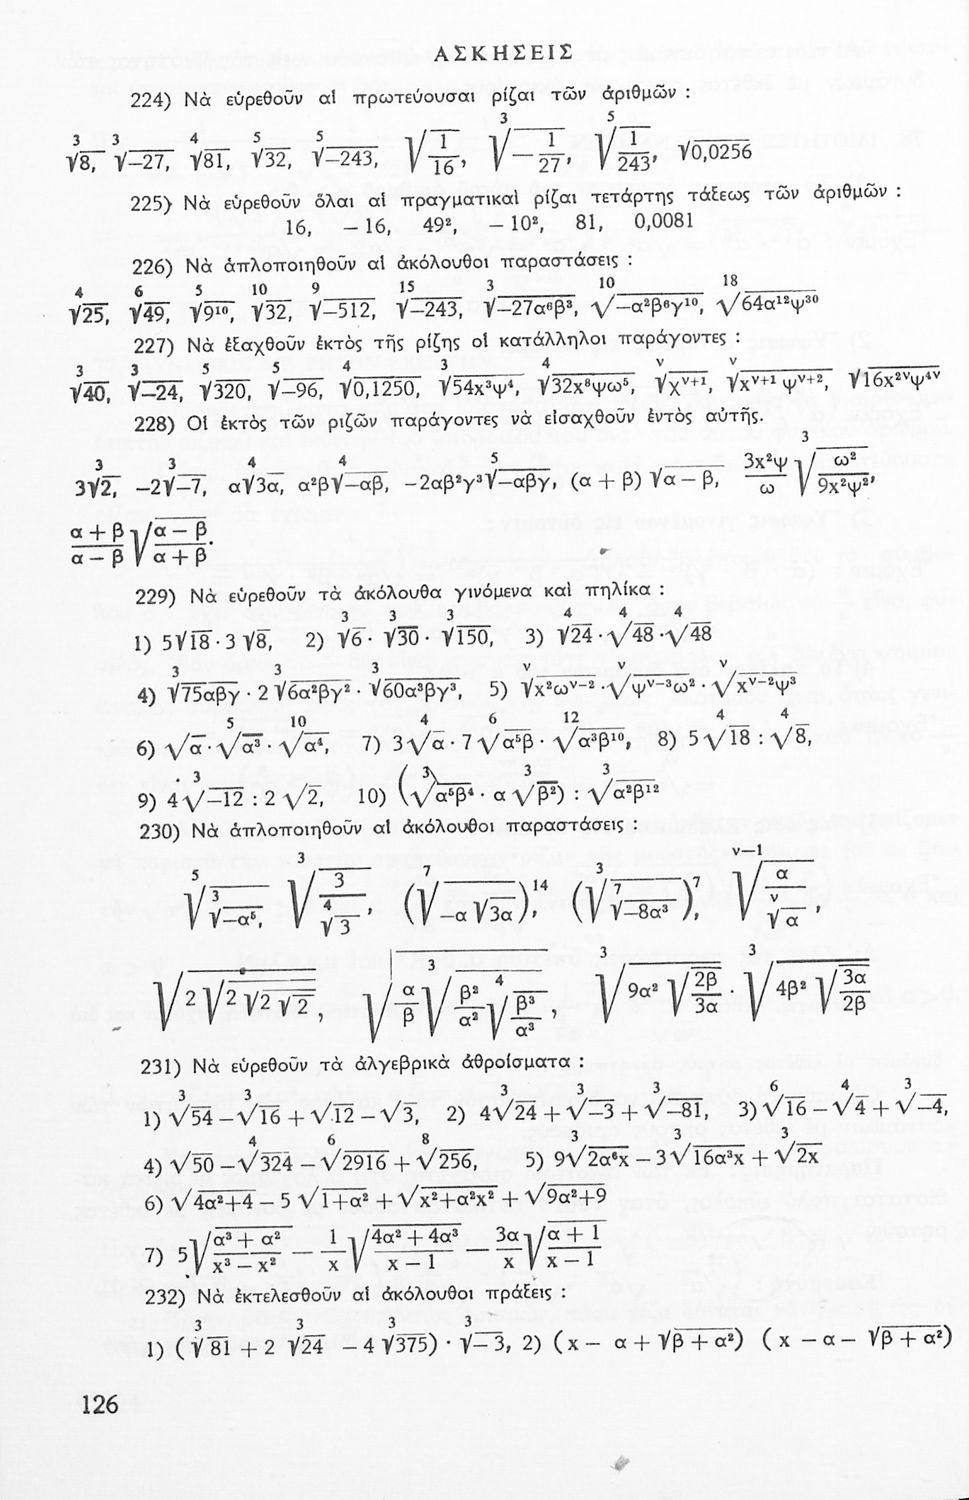 ΑΣΚΗΣΕΙΣ
224) Νὰ εὑρεθοῦν αἱ πρωτεύουσαι ρίζαι τῶν ἀριθμῶν :
∛8, ∛−27, ∜81, ⁵√32, ⁵√−243, √(1/16), ∛(−1/27), ⁵√(1/243), √0,0256
225) Νὰ εὑρεθοῦν ὅλαι αἱ πραγματικαὶ ρίζαι τετάρτης τάξεως τῶν ἀριθμῶν :
16, −16, 49², −10², 81, 0,0081
226) Νὰ ἁπλοποιηθοῦν αἱ ἀκόλουθοι παραστάσεις :
⁴√25, ⁶√49, ⁵√9¹⁰, ¹⁰√32, ⁹√−512, ¹⁵√−243, ³√−27α⁶β³, ¹⁰√−α²β⁶γ¹⁰, ¹⁸√64α¹²ψ³⁰
227) Νὰ ἐξαχθοῦν ἐκτὸς τῆς ρίζης οἱ κατάλληλοι παράγοντες :
³√40, ³√−24, ⁵√320, ⁵√−96, ⁴√0,1250, ³√54x³ψ⁴, ⁴√32x⁸ψω⁵, ᵛ√xᵛ⁺¹, ᵛ√xᵛ⁺¹ ψᵛ⁺², √16x²ᵛψ⁴ᵛ
228) Οἱ ἐκτὸς τῶν ριζῶν παράγοντες νὰ εἰσαχθοῦν ἐντὸς αὐτῆς.
3∛2, −2∛−7, α∜3α, α²β∜−αβ, −2αβ²γ³⁵√−αβγ, (α + β) √(α − β), (3x²ψ/ω) ∛(ω²/9x²ψ²),
(α + β)/(α − β) √((α − β)/(α + β)).
229) Νὰ εὑρεθοῦν τὰ ἀκόλουθα γινόμενα καὶ πηλίκα :
1) 5√18 · 3 √8, 2) ∛6 · ∛30 · ∛150, 3) ∜24 · ∜48 · ∜48
4) ∛75αβγ · 2 ∛6α²βγ² · ∛60α³βγ³, 5) ᵛ√x²ωᵛ⁻² · ᵛ√ψᵛ⁻³ω² · ᵛ√xᵛ⁻²ψ³
6) √α · ⁵√α³ · ¹⁰√α⁴, 7) 3 ⁴√α · 7 ⁶√α⁵β · ¹²√α³β¹⁰, 8) 5 ⁴√18 : ⁴√8,
9) 4 ∛−12 : 2 √2, 10) (∛α⁵β⁴ · α ∛β²) : ∛α²β¹²
230) Νὰ ἁπλοποιηθοῦν αἱ ἀκόλουθοι παραστάσεις :
⁵√(³√−α⁵), ³√(3/⁴√3), (⁷√(−α √3α))¹⁴, (³√(⁷√−8α³))⁷, ᵛ⁻¹√(α/ᵛ√α),
√(2 √(2 √(2 √2))), √(α/β ³√(β²/α² ⁴√(β³/α³))), ³√(9α² √(2β/3α)) · ³√(4β² √(3α/2β))
231) Νὰ εὑρεθοῦν τὰ ἀλγεβρικὰ ἀθροίσματα :
1) ∛54 − ∛16 + √12 − √3, 2) 4∛24 + ∛−3 + ∛−81, 3) ⁶√16 − ⁴√4 + ³√−4,
4) √50 − ⁴√324 − ⁶√2916 + ⁸√256, 5) 9∛2α⁶x − 3 ∛16α³x + ∛2x
6) √(4α²+4) − 5 √(1+α²) + √(x²+α²x²) + √(9α²+9)
7) 5√((α³ + α²)/(x³ − x²)) − (1/x) √((4α² + 4α³)/(x − 1)) − (3α/x) √((α + 1)/(x − 1))
232) Νὰ ἐκτελεσθοῦν αἱ ἀκόλουθοι πράξεις :
1) (∛81 + 2 ∛24 − 4 ∛375) · ∛−3, 2) (x − α + √(β + α²)) (x − α − √(β + α²))
126